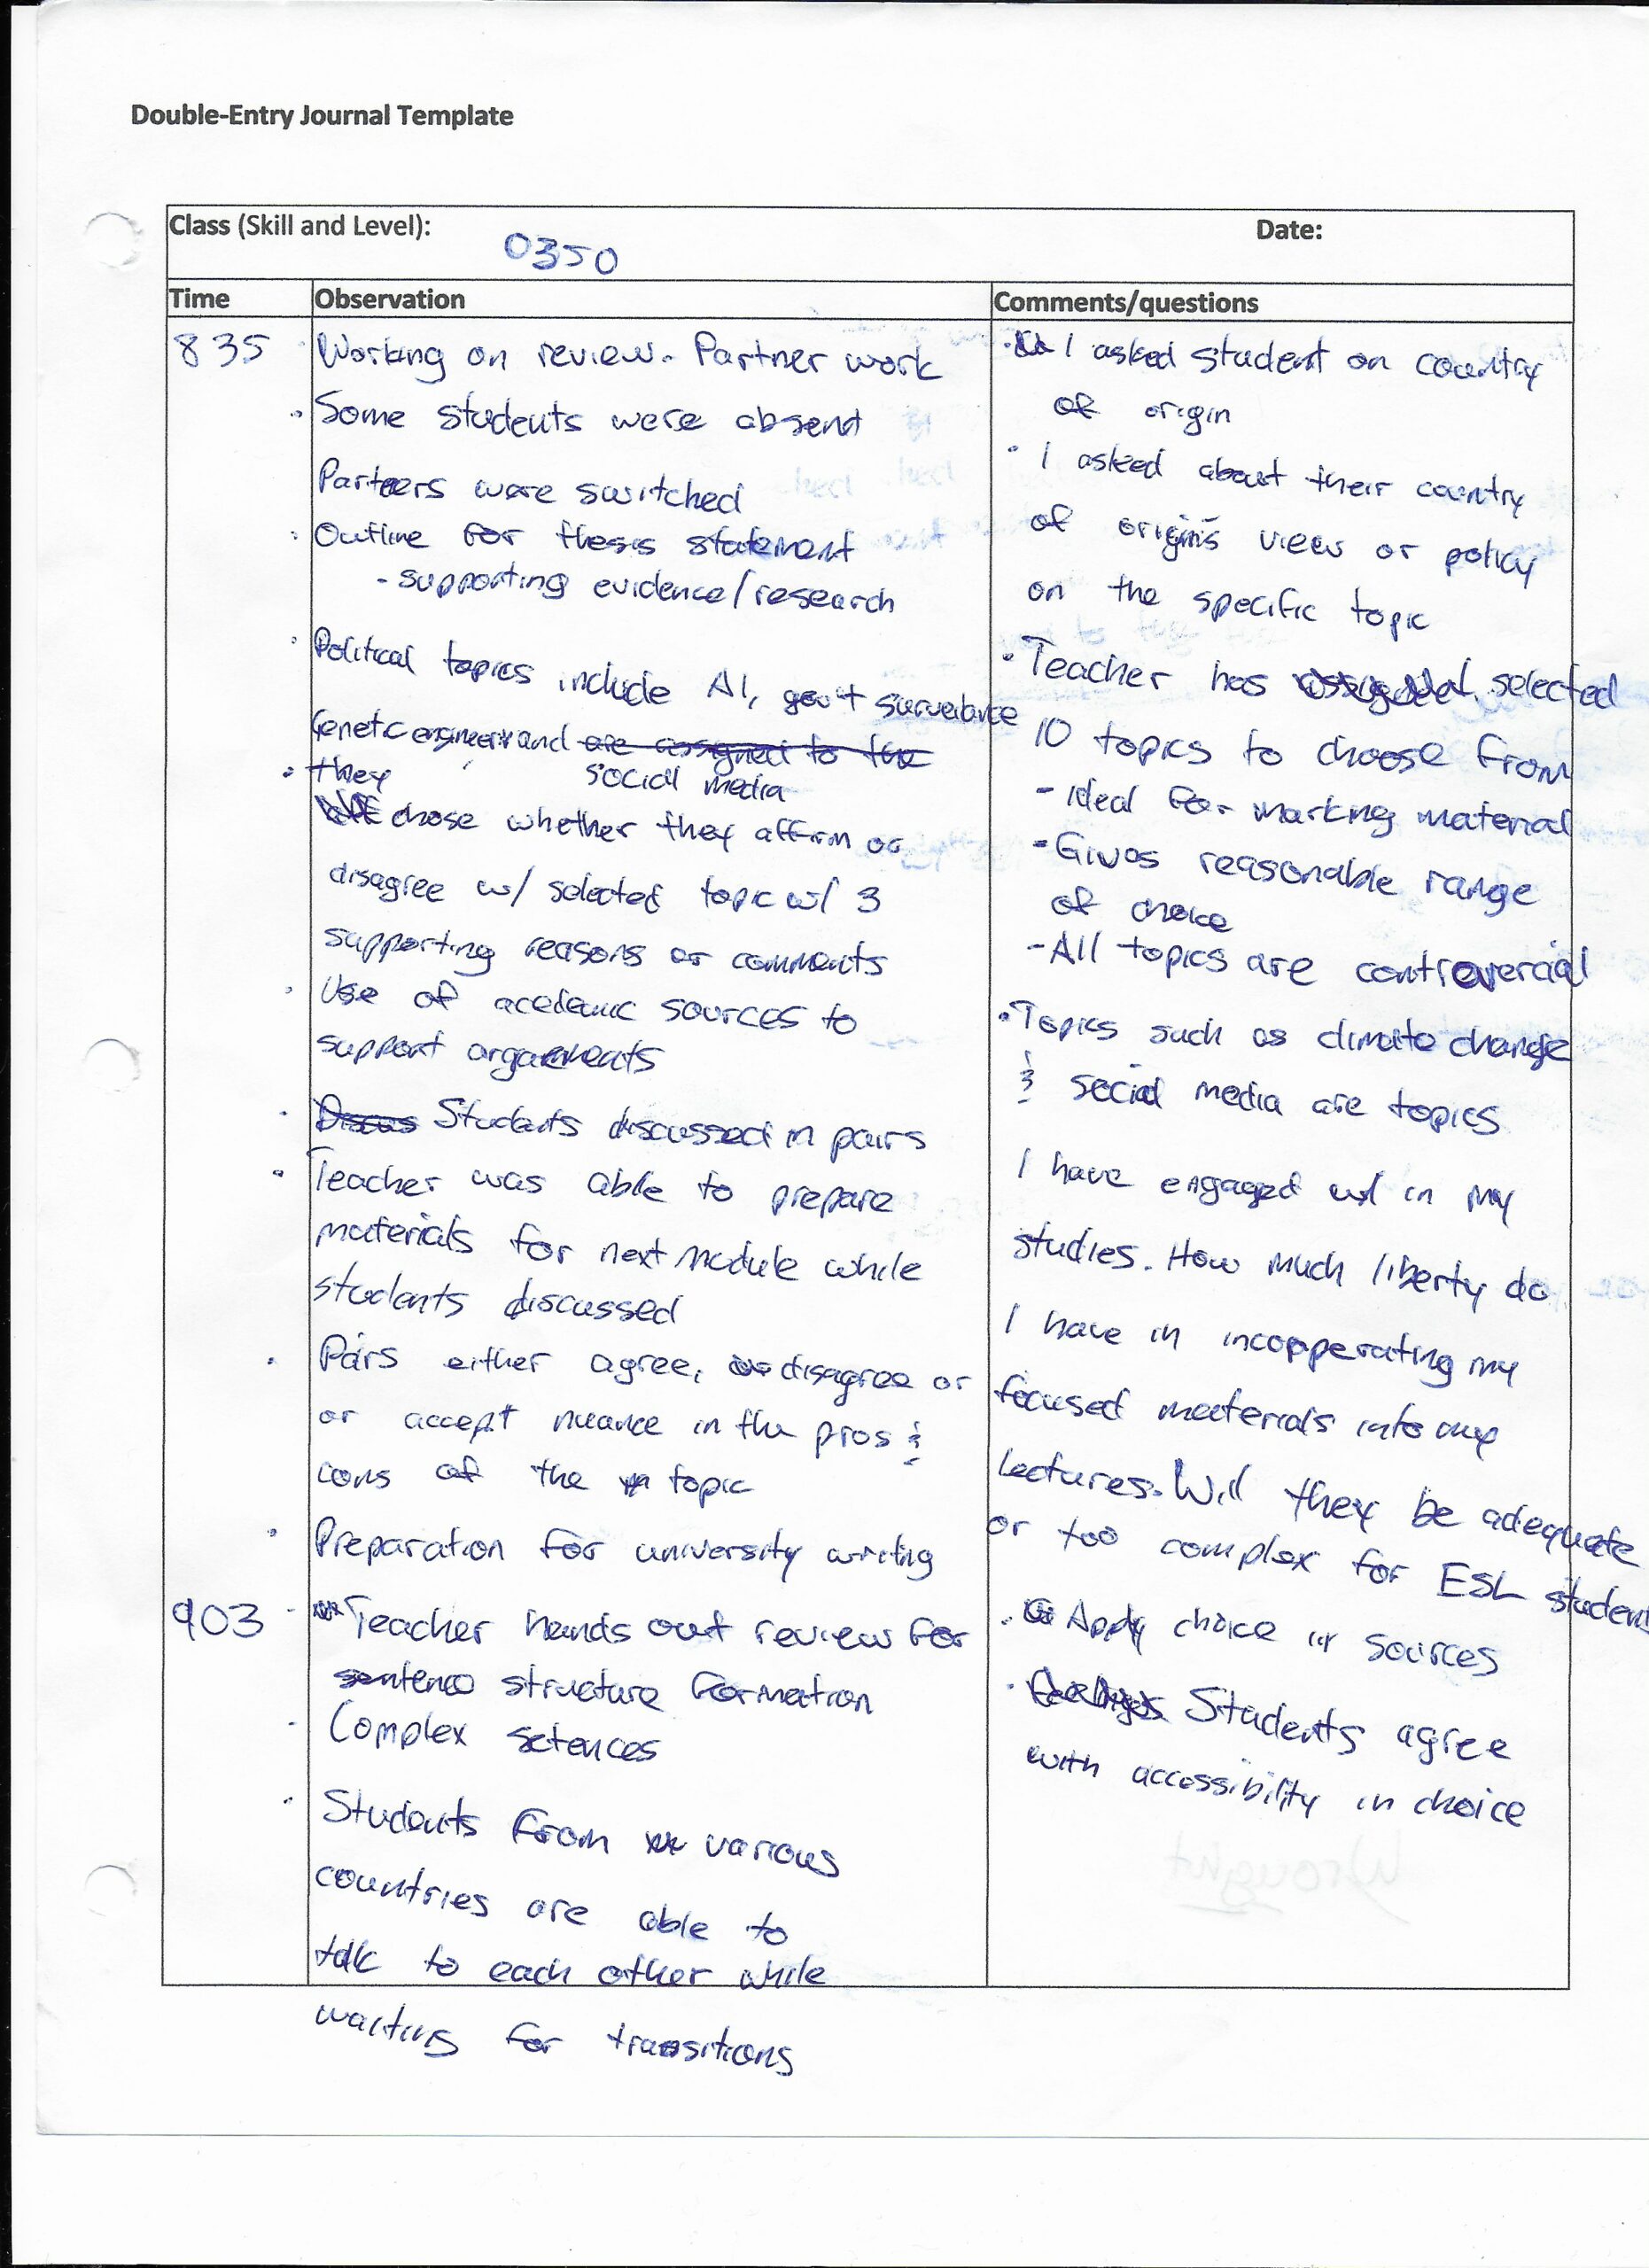 Double-Entry Journal Template
Class (Skill and Level): 0350 Date:
Time Observation Comments/questions
835
Working on review. Partner work
Some students were absent
Partners were switched
Outline for thesis statement
- supporting evidence/research
Political topics include AI, gov't surveilance
Genetic engineer and are assigned to the
social media
they
chose whether they affirm or
disagree w/ selected topic w/ 3
supporting reasons or comments
Use of acedemic sources to
support arguments
Discus Students discussed in pairs
Teacher was able to prepare
materials for next module while
students discussed
Pairs either agree, or disagree or
or accept nuance in the pros &
cons of the topic
Preparation for university writing
903
Teacher hands out review for
sentence structure formation
Complex setences
Students from various
countries are able to
talk to each other while
waiting for transitions
I asked student on country
of origin
I asked about their country
of origin's view or policy
on the specific topic
Teacher has assigned selected
10 topics to choose from
- ideal for marking material
- Gives reasonable range
of choice
- All topics are controvercial
Topics such as climate change
& social media are topics
I have engaged w/ in my
studies. How much liberty do
I have in incopperating my
focused materials into my
lectures. Will they be adequate
or too complex for ESL student
Apply choice in sources
Students agree
with accessibility in choice